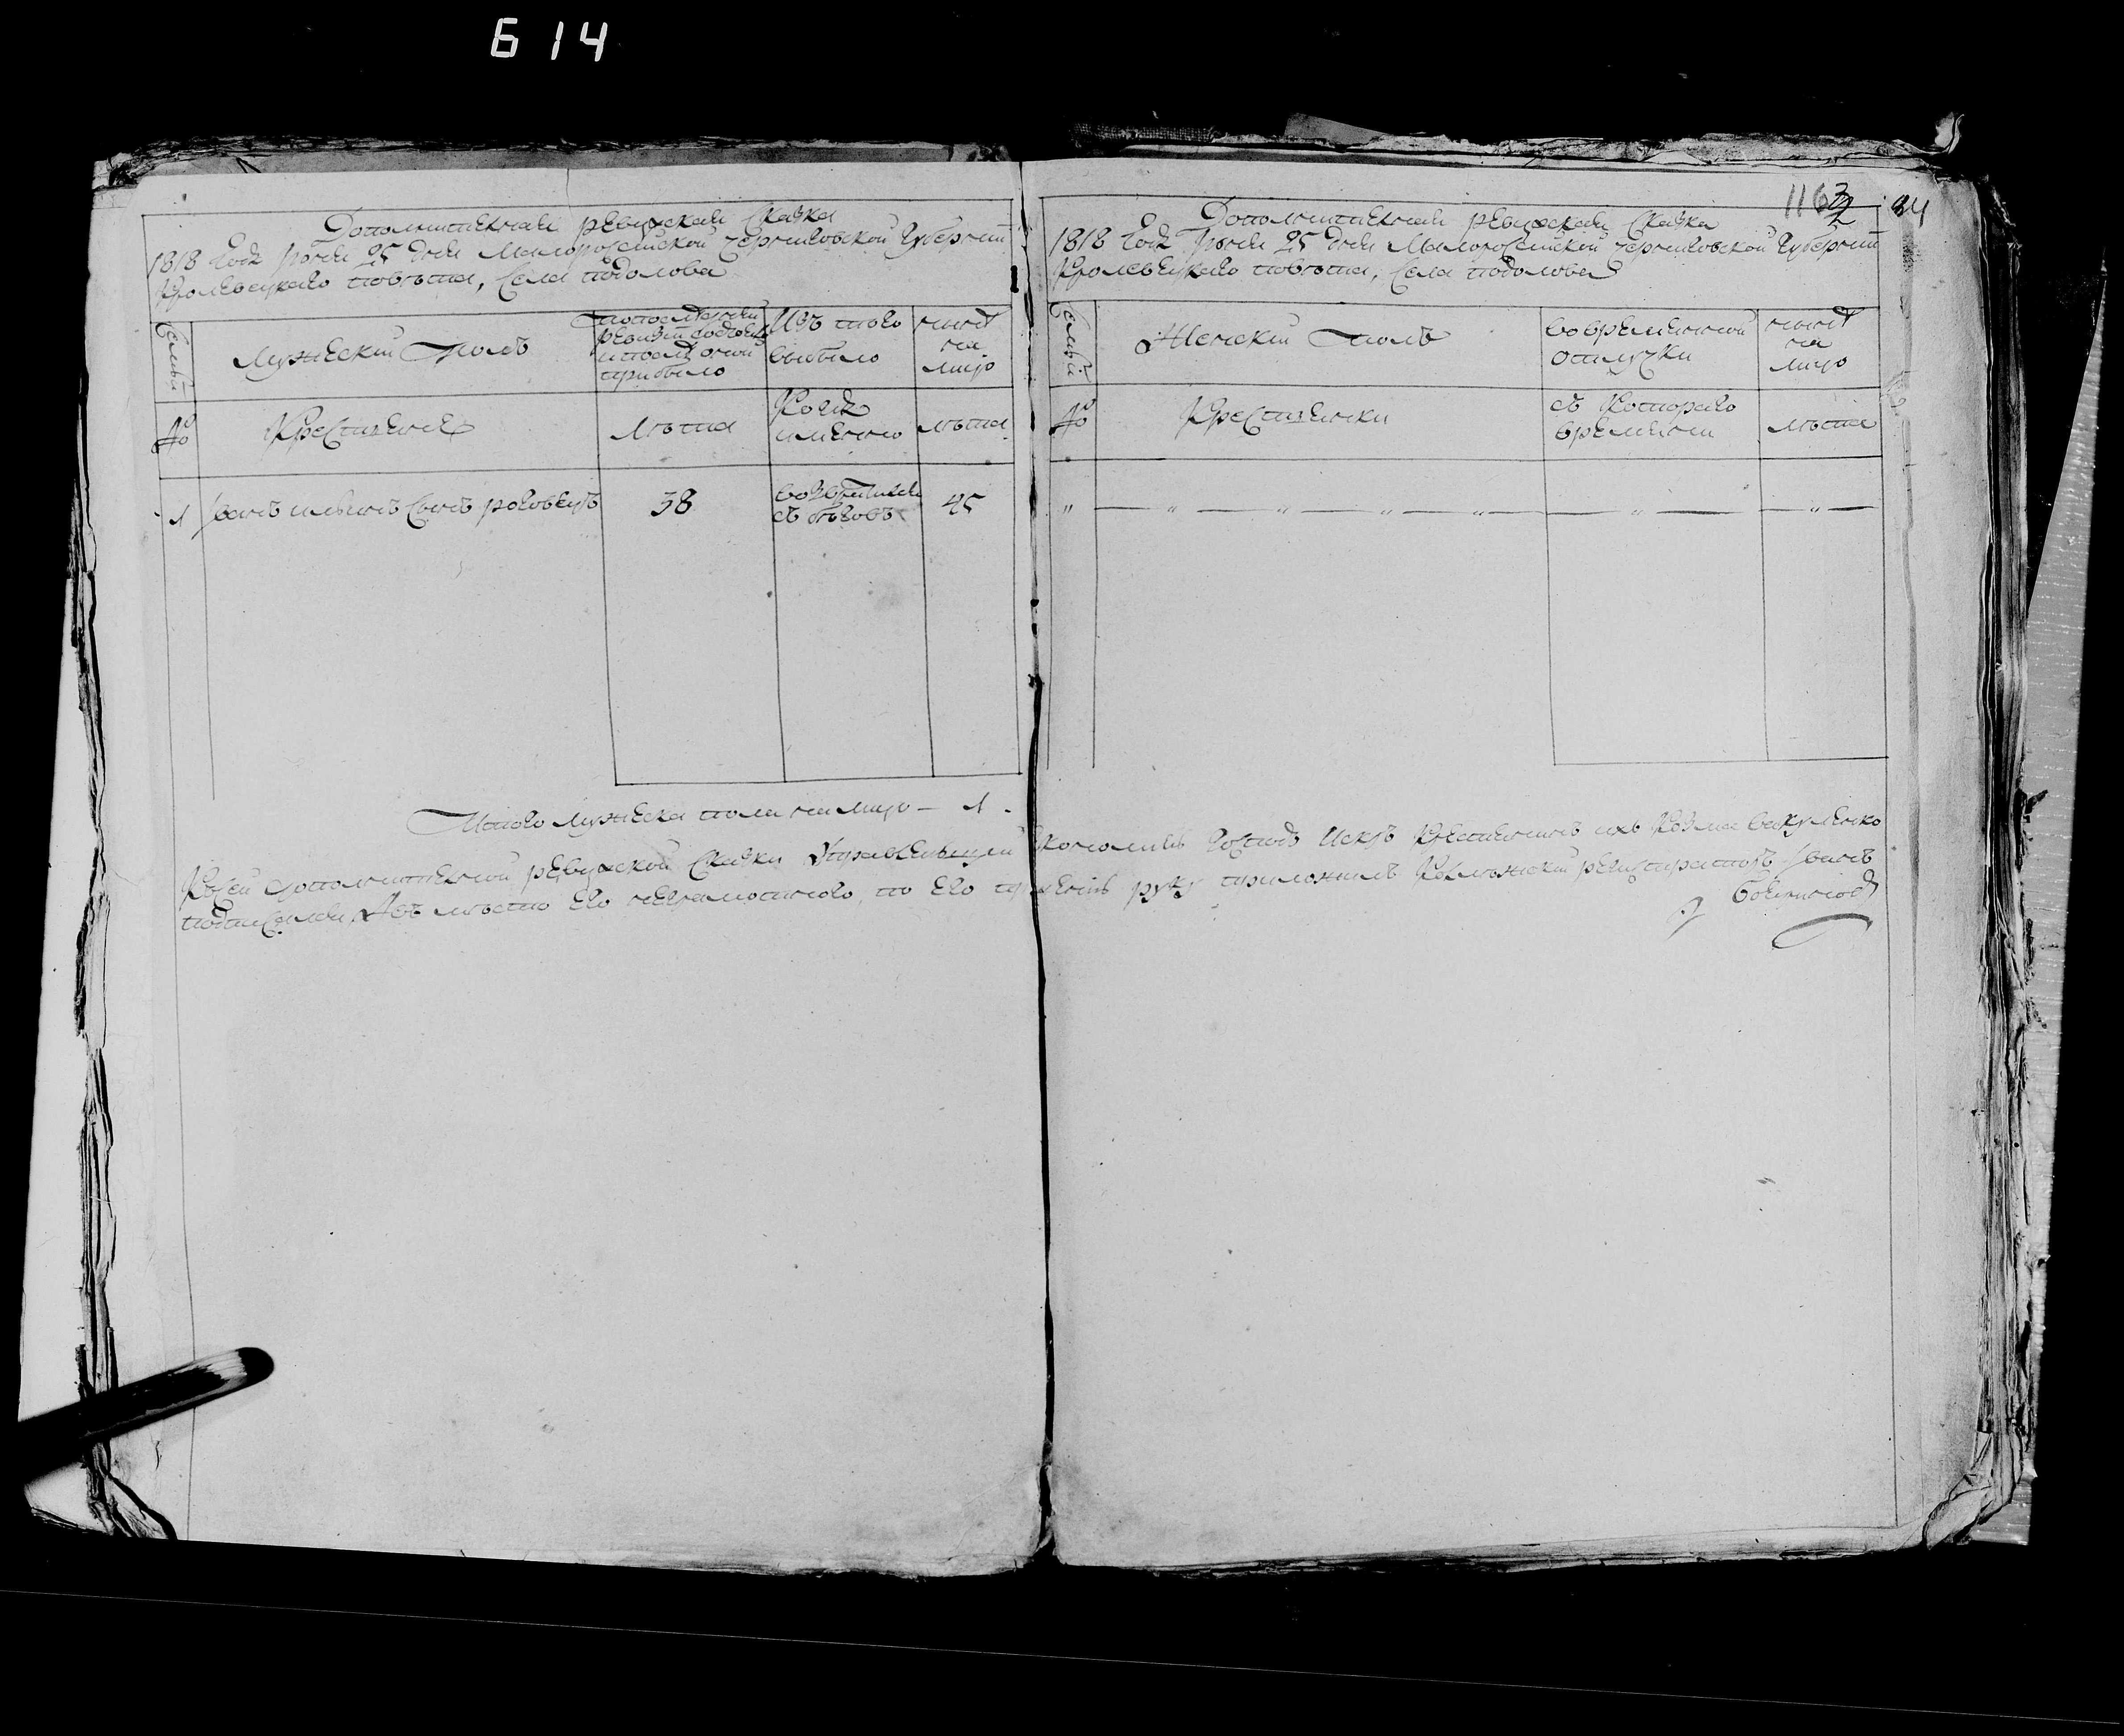 614
1163 84
Дополнительная ревизская сказка
1818 года июня 25 дня Малоросийской черниговской Губернии
Кролевецкаго повѣта, села подолова
Семьи
Мужеский полъ
По последней ревизии состояло и после оной прибыло
Изъ того выбыло
ныне на лицо
№
Крестьяне
лѣта
Когда именно
лѣта
1
Иванъ ильинъ сынъ роговецъ
38
возвратился съ бѣговъ
45
Итого мужеска пола на лицо — 1.
Дополнительная ревизская сказка
1818 года июня 25 дня Малоросийской черниговской Губернии
Кролевецкаго повѣта, села подолова
Семьи
Женский полъ
во временной отлучки
ныне на лицо
№
Крестьянки
съ котораго времени
лѣта
К сей дополнительной ревизской сказки управляющей економиею господъ Искръ крестьянинъ ихъ Козма вакуленко
подписался, А въ мѣсто его неграмотного, по его прошению руку приложилъ регистраторъ Иванъ